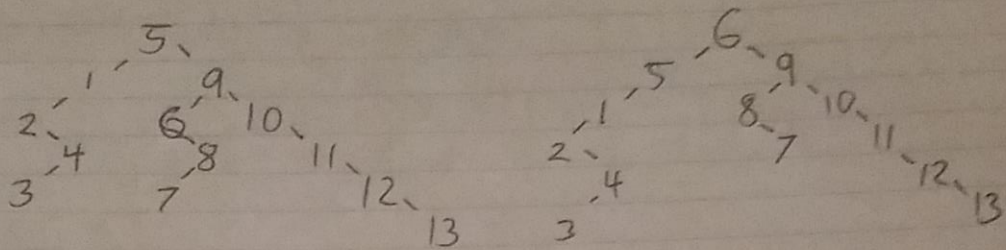 5
1 9
2 6 10
4 8 11
3 7 12
13
6
5 9
1 8 10
2 7 11
4 12
3 13